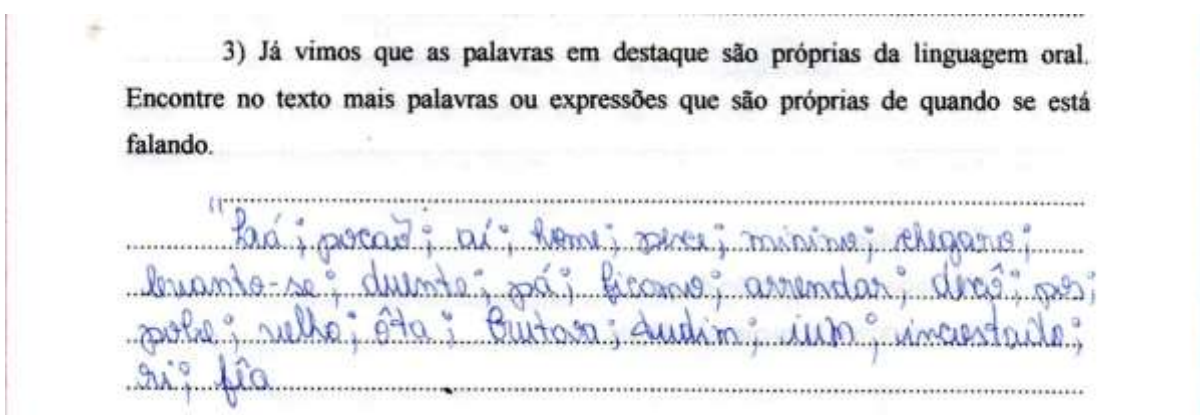 3) Já vimos que as palavras em destaque são próprias da linguagem oral.
Encontre no texto mais palavras ou expressões que são próprias de quando se está
falando.
aí; home; minino; chegaro;
levanto-se; duente; pá; ficamo; arrendar; por;
pobe; velho; ôta; dudim; ium;
ri; fîa